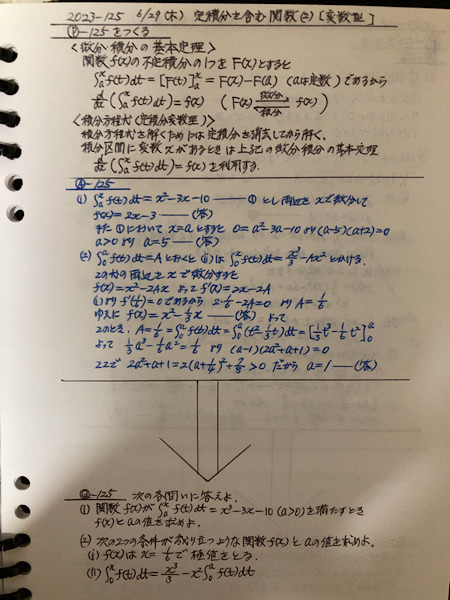 2023-125 6/29(木) 定積分を含む関数(2)[変数型]
Ⓟ-125をつくる
<微分・積分の基本定理>
関数f(x)の不定積分の1つをF(x)とすると
∫ₐˣf(t)dt=[F(t)]ₐˣ=F(x)-F(a) (aは定数)であるから
d/dx(∫ₐˣf(t)dt)=f(x) (F(x) 微分⇄積分 f(x))
<積分方程式(定積分変数型)>
積分方程式を解くためには定積分を消去してから解く。
積分区間に変数xがあるときは上記の微分積分の基本定理
d/dx(∫ₐˣf(t)dt)=f(x)を利用する.
Ⓐ-125
(1) ∫ₐˣf(t)dt=x²-3x-10 ―― ① とし両辺をxで微分して
f(x)=2x-3 ―― (答)
また①においてx=aとすると 0=a²-3a-10より(a-5)(a+2)=0
a>0より a=5 ―― (答)
(2) ∫₀ᵃf(t)dt=Aとおくと(ii)は∫₀ˣf(t)dt=x³/3-Ax²とかける.
この式の両辺をxで微分すると
f(x)=x²-2Ax よって f'(x)=2x-2A
(i)より f'(1/6)=0であるから 2・1/6-2A=0 より A=1/6
ゆえに f(x)=x²-1/3x ―― (答) よって
このとき, A=1/6=∫₀ᵃf(t)dt=∫₀ᵃ(t²-1/3t)dt=[1/3t³-1/6t²]₀ᵃ
よって 1/3a³-1/6a²=1/6 より (a-1)(2a²+a+1)=0
ここで 2a²+a+1=2(a+1/4)²+7/8>0 だから a=1 ―― (答)
Ⓠ-125 次の各問いに答えよ.
(1) 関数f(x)が∫ₐˣf(t)dt=x²-3x-10 (a>0)を満たすとき
f(x)とaの値を求めよ.
(2) 次の2つの条件が成り立つような関数f(x)とaの値を求めよ。
(i) f(x)は x=1/6で極値をとる.
(ii) ∫₀ˣf(t)dt=x³/3-x²∫₀ᵃf(t)dt